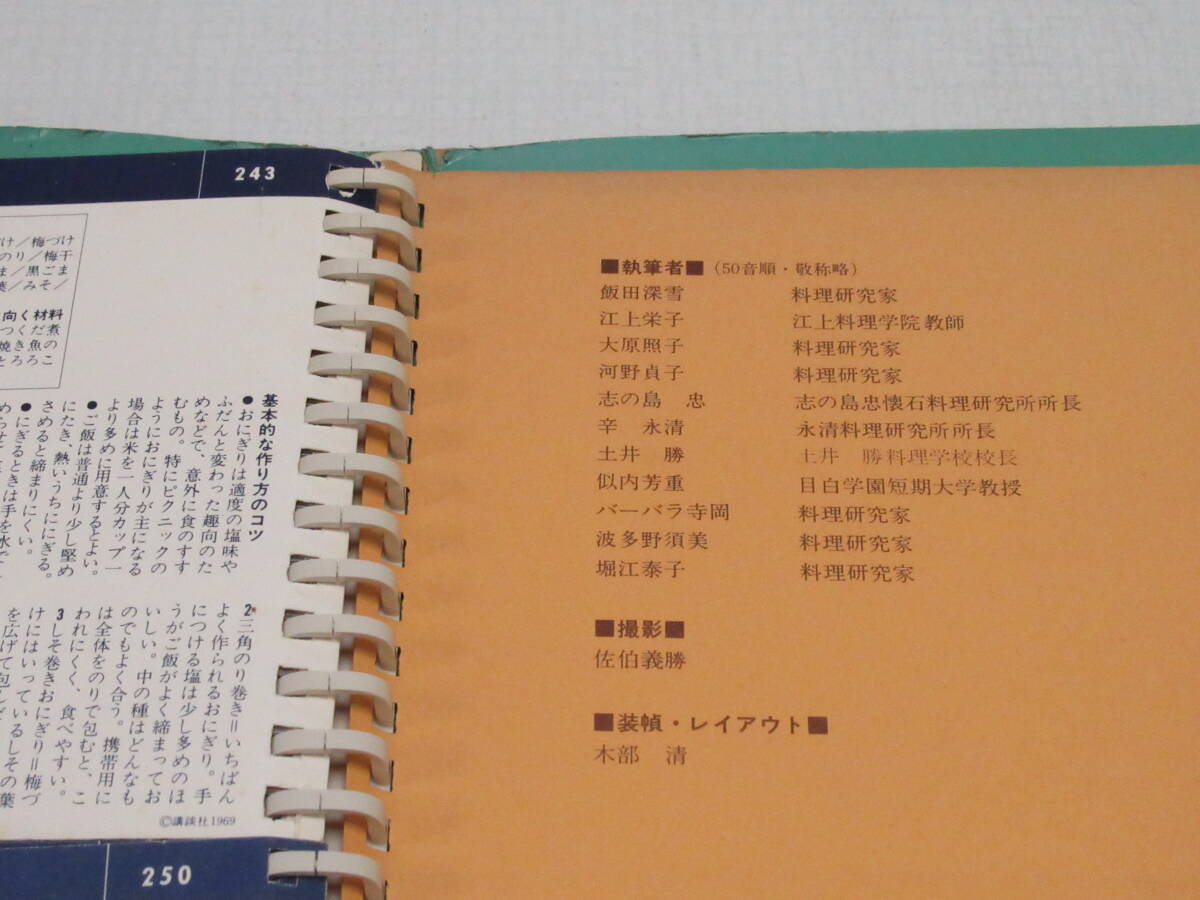 243
け/梅づけ
のり/梅干
ま/黒ごま
/みそ/
向く材料
つくだ煮
焼き魚の
とろろこ
基本的な作り方のコツ
●おにぎりは適度の塩味や
ふだんと変わった趣向のた
めなどで、意外に食のすす
むもの。特にピクニックの
ようにおにぎりが主になる
場合は米を一人分カップ一
より多めに用意するとよい。
●ご飯は普通より少し堅め
にたき、熱いうちににぎる。
さめると締まりにくい。
●にぎるときは手を水で
2三角のり巻き=いちばん
よく作られるおにぎり。手
につける塩は少し多めのほ
うがご飯がよく締まってお
いしい。中の種はどんなも
のでもよく合う。携帯用に
は全体をのりで包むと、こ
われにくく、食べやすい。
3しそ巻きおにぎり=梅づ
けにはいっているしその葉
を広げて包
©講談社1969
250
■執筆者■(50音順・敬称略)
飯田深雪 料理研究家
江上栄子 江上料理学院教師
大原照子 料理研究家
河野貞子 料理研究家
志の島 忠 志の島忠懐石料理研究所所長
辛 永清 永清料理研究所所長
土井 勝 土井 勝料理学校校長
似内芳重 目白学園短期大学教授
バーバラ寺岡 料理研究家
波多野須美 料理研究家
堀江泰子 料理研究家
■撮影■
佐伯義勝
■装幀・レイアウト■
木部 清